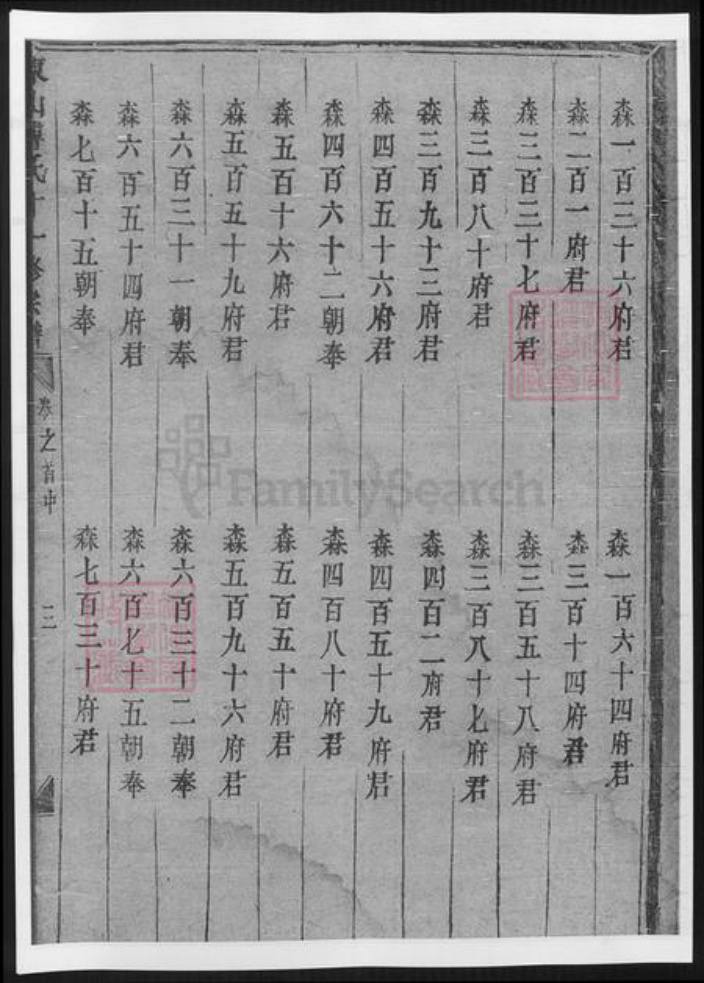 森一百三十六府君
森一百六十四府君
森二百一府君
森三百十四府君
森三百三十七府君
森三百五十八府君
森三百八十府君
森三百八十七府君
森三百九十三府君
森四百二府君
森四百五十六府君
森四百五十九府君
森四百六十二朝奉
森四百八十府君
森五百十六府君
森五百五十府君
森五百五十九府君
森五百九十六府君
森六百三十一朝奉
森六百三十二朝奉
森六百五十四府君
森六百七十五朝奉
森七百十五朝奉
森七百三十府君
卷之首中
三
FamilySearch